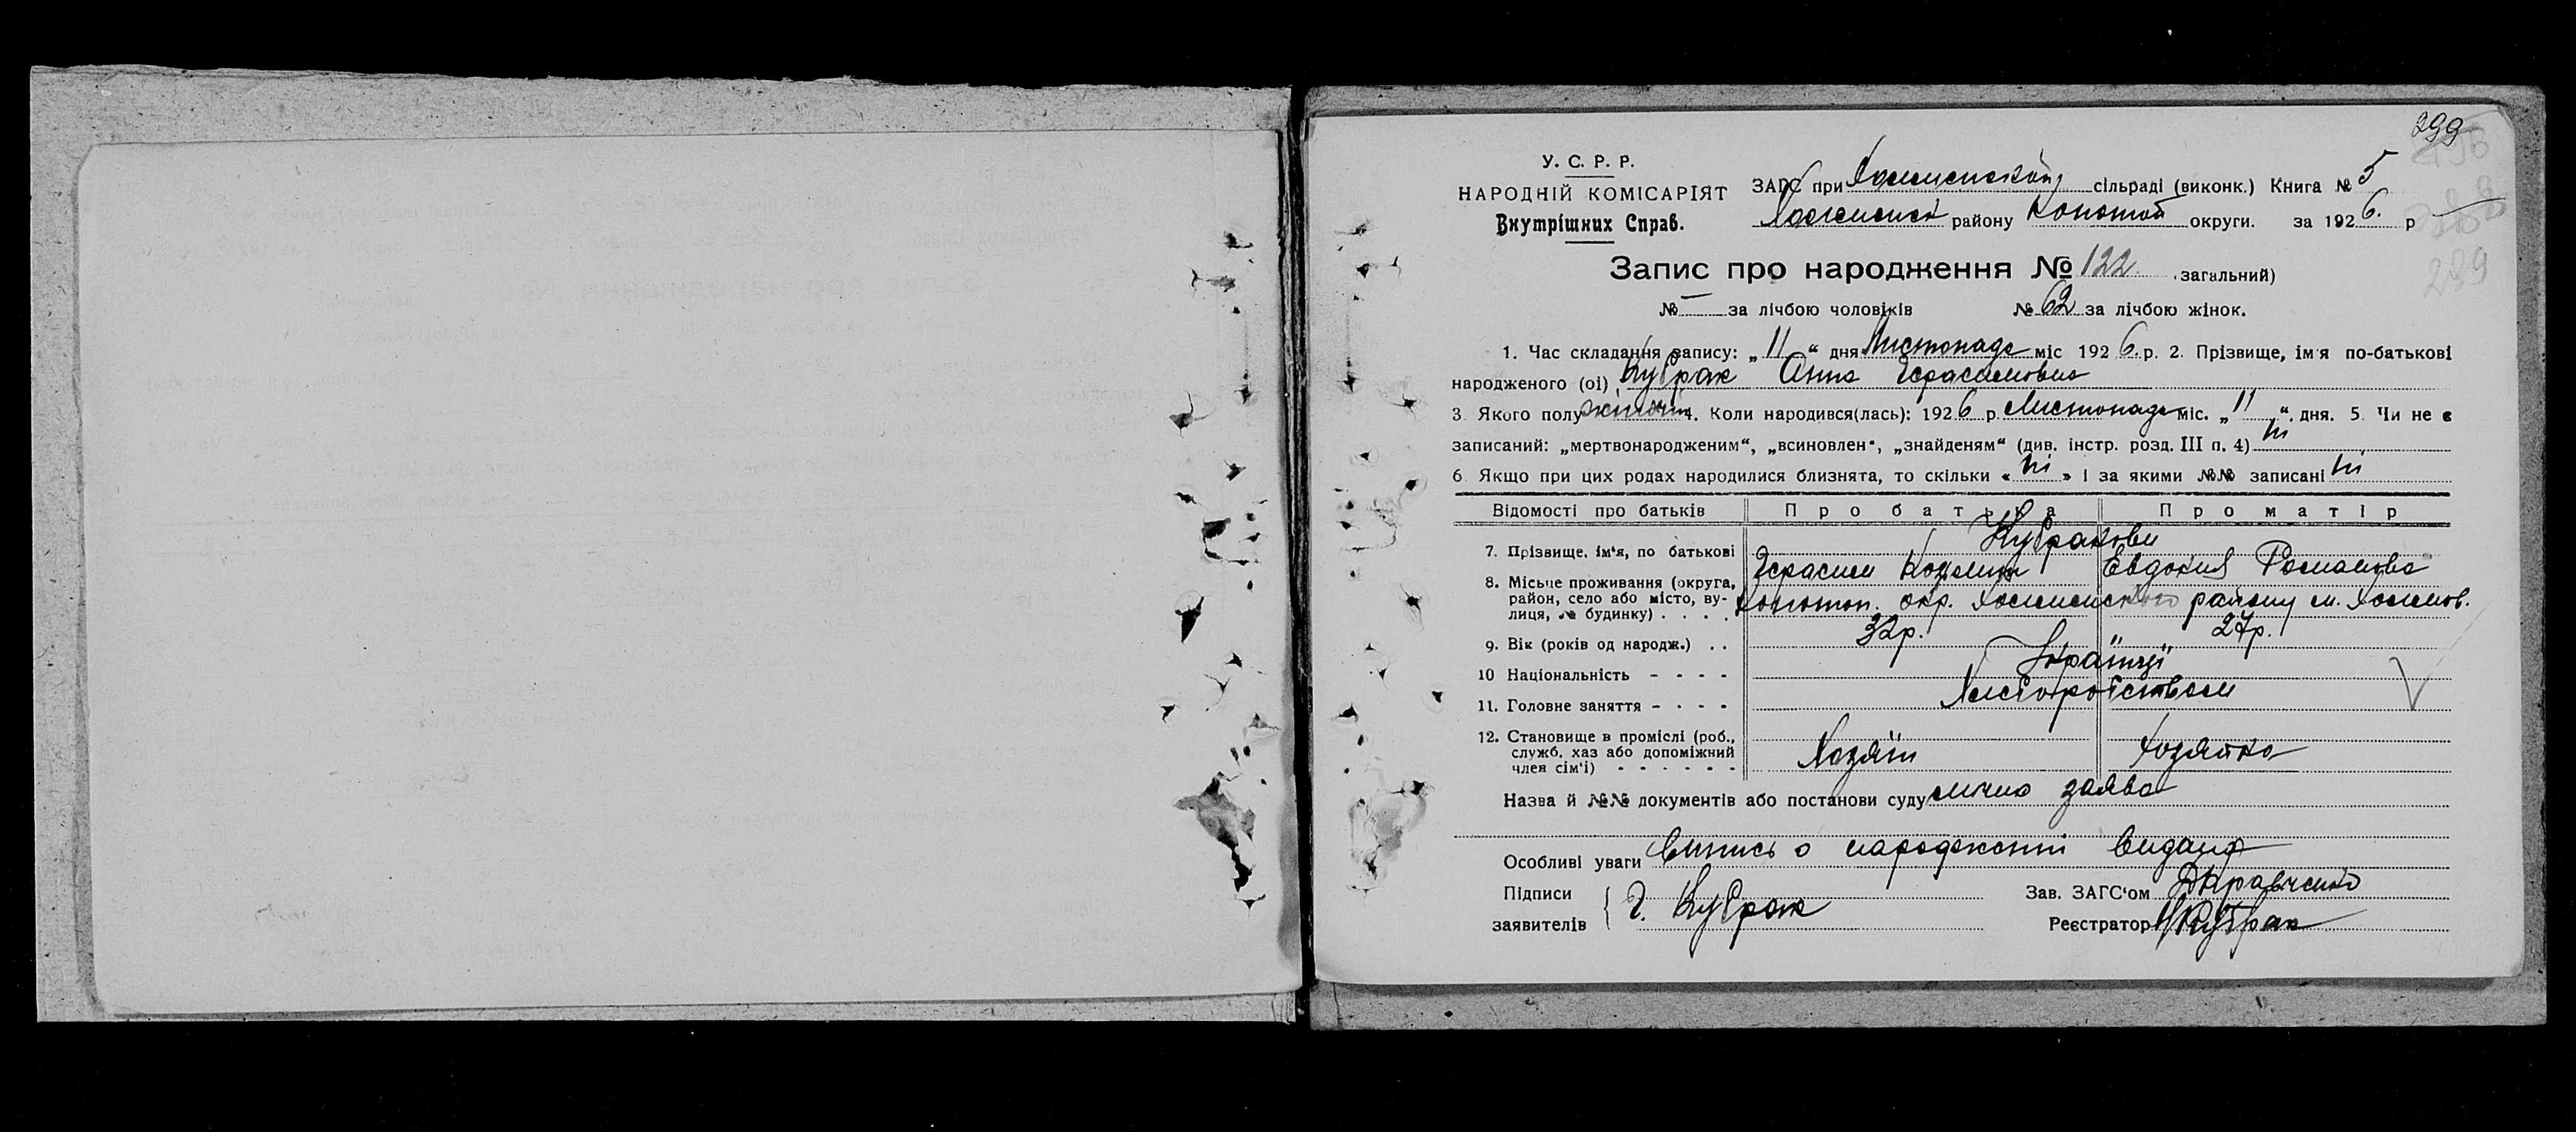 299
У. С. Р. Р.
НАРОДНІЙ КОМІСАРІЯТ
Внутрішних Справ.
ЗАГС при сільраді (виконк.) Книга № 5
району Конотоп округи. за 1926. р
Запис про народження № 122 загальний)
289
№ — за лічбою чоловіків № 62 за лічбою жінок.
1. Час складання запису: „11“ дня Листопада міс 1926. р. 2. Прізвище, ім'я по-батькові
народженого (ої) Кубрак Анна Герасимовна
3. Якого полу жіночи 4. Коли народився(лась): 1926 р. Листопада міс. „11“ дня. 5. Чи не є
записаний: „мертвонародженим“, „всиновлен“, „знайденям“ (див. інстр. розд. III п. 4) ні
6. Якщо при цих родах народилися близнята, то скільки «ні» і за якими №№ записані ні
Відомості про батьків Про батька Про матір
7. Прізвище, ім'я, по батькові Кубракови
Герасим Евдокия Романовна
8. Місьце проживання (округа, район, село або місто, вулиця, № будинку) . . . . Конотоп. окр. району м.
9. Вік (років од народж.) . . 32р. 27р.
10 Національність - - - - Українці
11. Головне заняття - - - - Хлеборобством
12. Становище в промислі (роб., служб. хаз або допоміжний член сім'ї) - - - - - - Хозяїн Хозяйка
Назва й №№ документів або постанови суду лична заява
Особливі уваги Випись о народженні видана
Підписи заявителів Г. Кубрак
Зав. ЗАГС'ом Кравченко
Реєстратор Кубрак